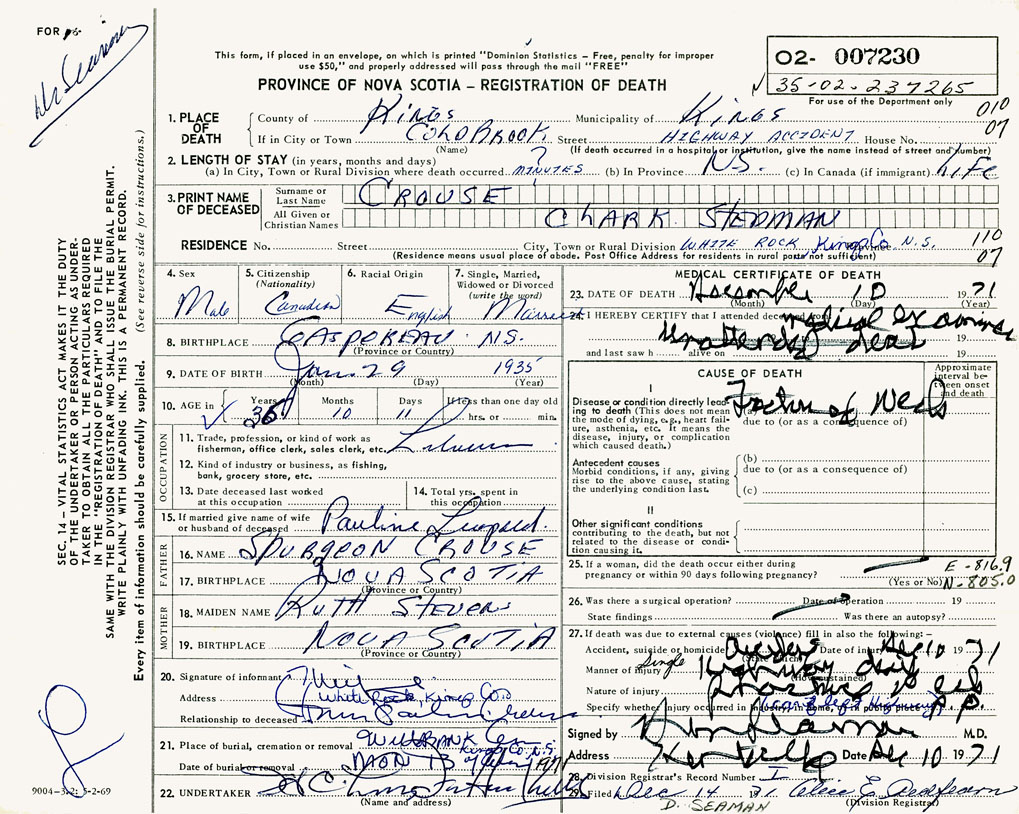 FOR
Dr Seaman
This form, if placed in an envelope, on which is printed "Dominion Statistics – Free, penalty for improper
use $50," and properly addressed will pass through the mail "FREE"
PROVINCE OF NOVA SCOTIA – REGISTRATION OF DEATH
02- 007230
35-02-237265
For use of the Department only
1. PLACE OF DEATH
County of Kings Municipality of Kings 010
If in City or Town COLDBROOK Street HIGHWAY ACCIDENT House No. 07
(Name) (If death occurred in a hospital or institution, give the name instead of street and number)
2. LENGTH OF STAY (in years, months and days) ?
(a) In City, Town or Rural Division where death occurred MINUTES (b) In Province N.S. (c) In Canada (if immigrant) Life
3. PRINT NAME OF DECEASED
Surname or Last Name CROUSE
All Given or Christian Names CLARK STEDMAN
RESIDENCE No. Street City, Town or Rural Division WHITE ROCK Kings Co N.S. 110
(Residence means usual place of abode. Post Office Address for residents in rural parts not sufficient) 07
SEC. 14 – VITAL STATISTICS ACT MAKES IT THE DUTY
OF THE UNDERTAKER OR PERSON ACTING AS UNDER-
TAKER TO OBTAIN ALL THE PARTICULARS REQUIRED
IN THE "REGISTRATION OF DEATH" AND TO FILE THE
SAME WITH THE DIVISION REGISTRAR WHO SHALL ISSUE THE BURIAL PERMIT.
WRITE PLAINLY WITH UNFADING INK. THIS IS A PERMANENT RECORD.
Every item of information should be carefully supplied. (See reverse side for instructions.)
4. Sex Male
5. Citizenship (Nationality) Canadian
6. Racial Origin English
7. Single, Married, Widowed or Divorced (write the word) Married
8. BIRTHPLACE GASPEREAU N.S.
(Province or Country)
9. DATE OF BIRTH Jan. 29 1935
(Month) (Day) (Year)
10. AGE in Years 36 Months 10 Days 11 If less than one day old hrs. or min.
OCCUPATION
11. Trade, profession, or kind of work as
fisherman, office clerk, sales clerk, etc.
12. Kind of industry or business, as fishing,
bank, grocery store, etc.
13. Date deceased last worked
at this occupation
14. Total yrs. spent in
this occupation
15. If married give name of wife
or husband of deceased Pauline Leopold.
FATHER
16. NAME SPURGEON CROUSE
17. BIRTHPLACE NOVA SCOTIA
(Province or Country)
MOTHER
18. MAIDEN NAME RUTH STEVENS
19. BIRTHPLACE NOVA SCOTIA
(Province or Country)
20. Signature of informant
Address White Rock, Kings Co.
Relationship to deceased Pauline Crouse
21. Place of burial, cremation or removal WILLBANK Cem Kings Co. N.S.
Date of burial or removal MON 13 1971
22. UNDERTAKER
(Name and address)
9004-3.2; 5-2-69
MEDICAL CERTIFICATE OF DEATH
23. DATE OF DEATH December 10 1971
(Month) (Day) (Year)
24. I HEREBY CERTIFY that I attended deceased from medical examiner
Unattended death 19
and last saw h alive on 19
CAUSE OF DEATH
Approximate interval between onset and death
I
Disease or condition directly lead-
ing to death (This does not mean
the mode of dying, e.g., heart fail-
ure, asthenia, etc. It means the
disease, injury, or complication
which caused death.)
(a) Fracture of Neck
due to (or as a consequence of)
Antecedent causes
Morbid conditions, if any, giving
rise to the above cause, stating
the underlying condition last.
(b)
due to (or as a consequence of)
(c)
II
Other significant conditions
contributing to the death, but not
related to the disease or condi-
tion causing it.
25. If a woman, did the death occur either during
pregnancy or within 90 days following pregnancy?
(Yes or No)
E-816.9
N-805.0
26. Was there a surgical operation? Date of operation 19
State findings Was there an autopsy?
27. If death was due to external causes (violence) fill in also the following:–
Accident, suicide or homicide Accident Date of injury Dec 10 1971
(State which)
Manner of injury Single Highway
(How sustained)
Nature of injury fracture
Specify whether injury occurred in industry, in home, or in public place
Signed by M.D.
Address Kentville Date Dec 10 1971
28. Division Registrar's Record Number
29. Filed Dec 14 71 Alice E.
(Division Registrar)
D. SEAMAN